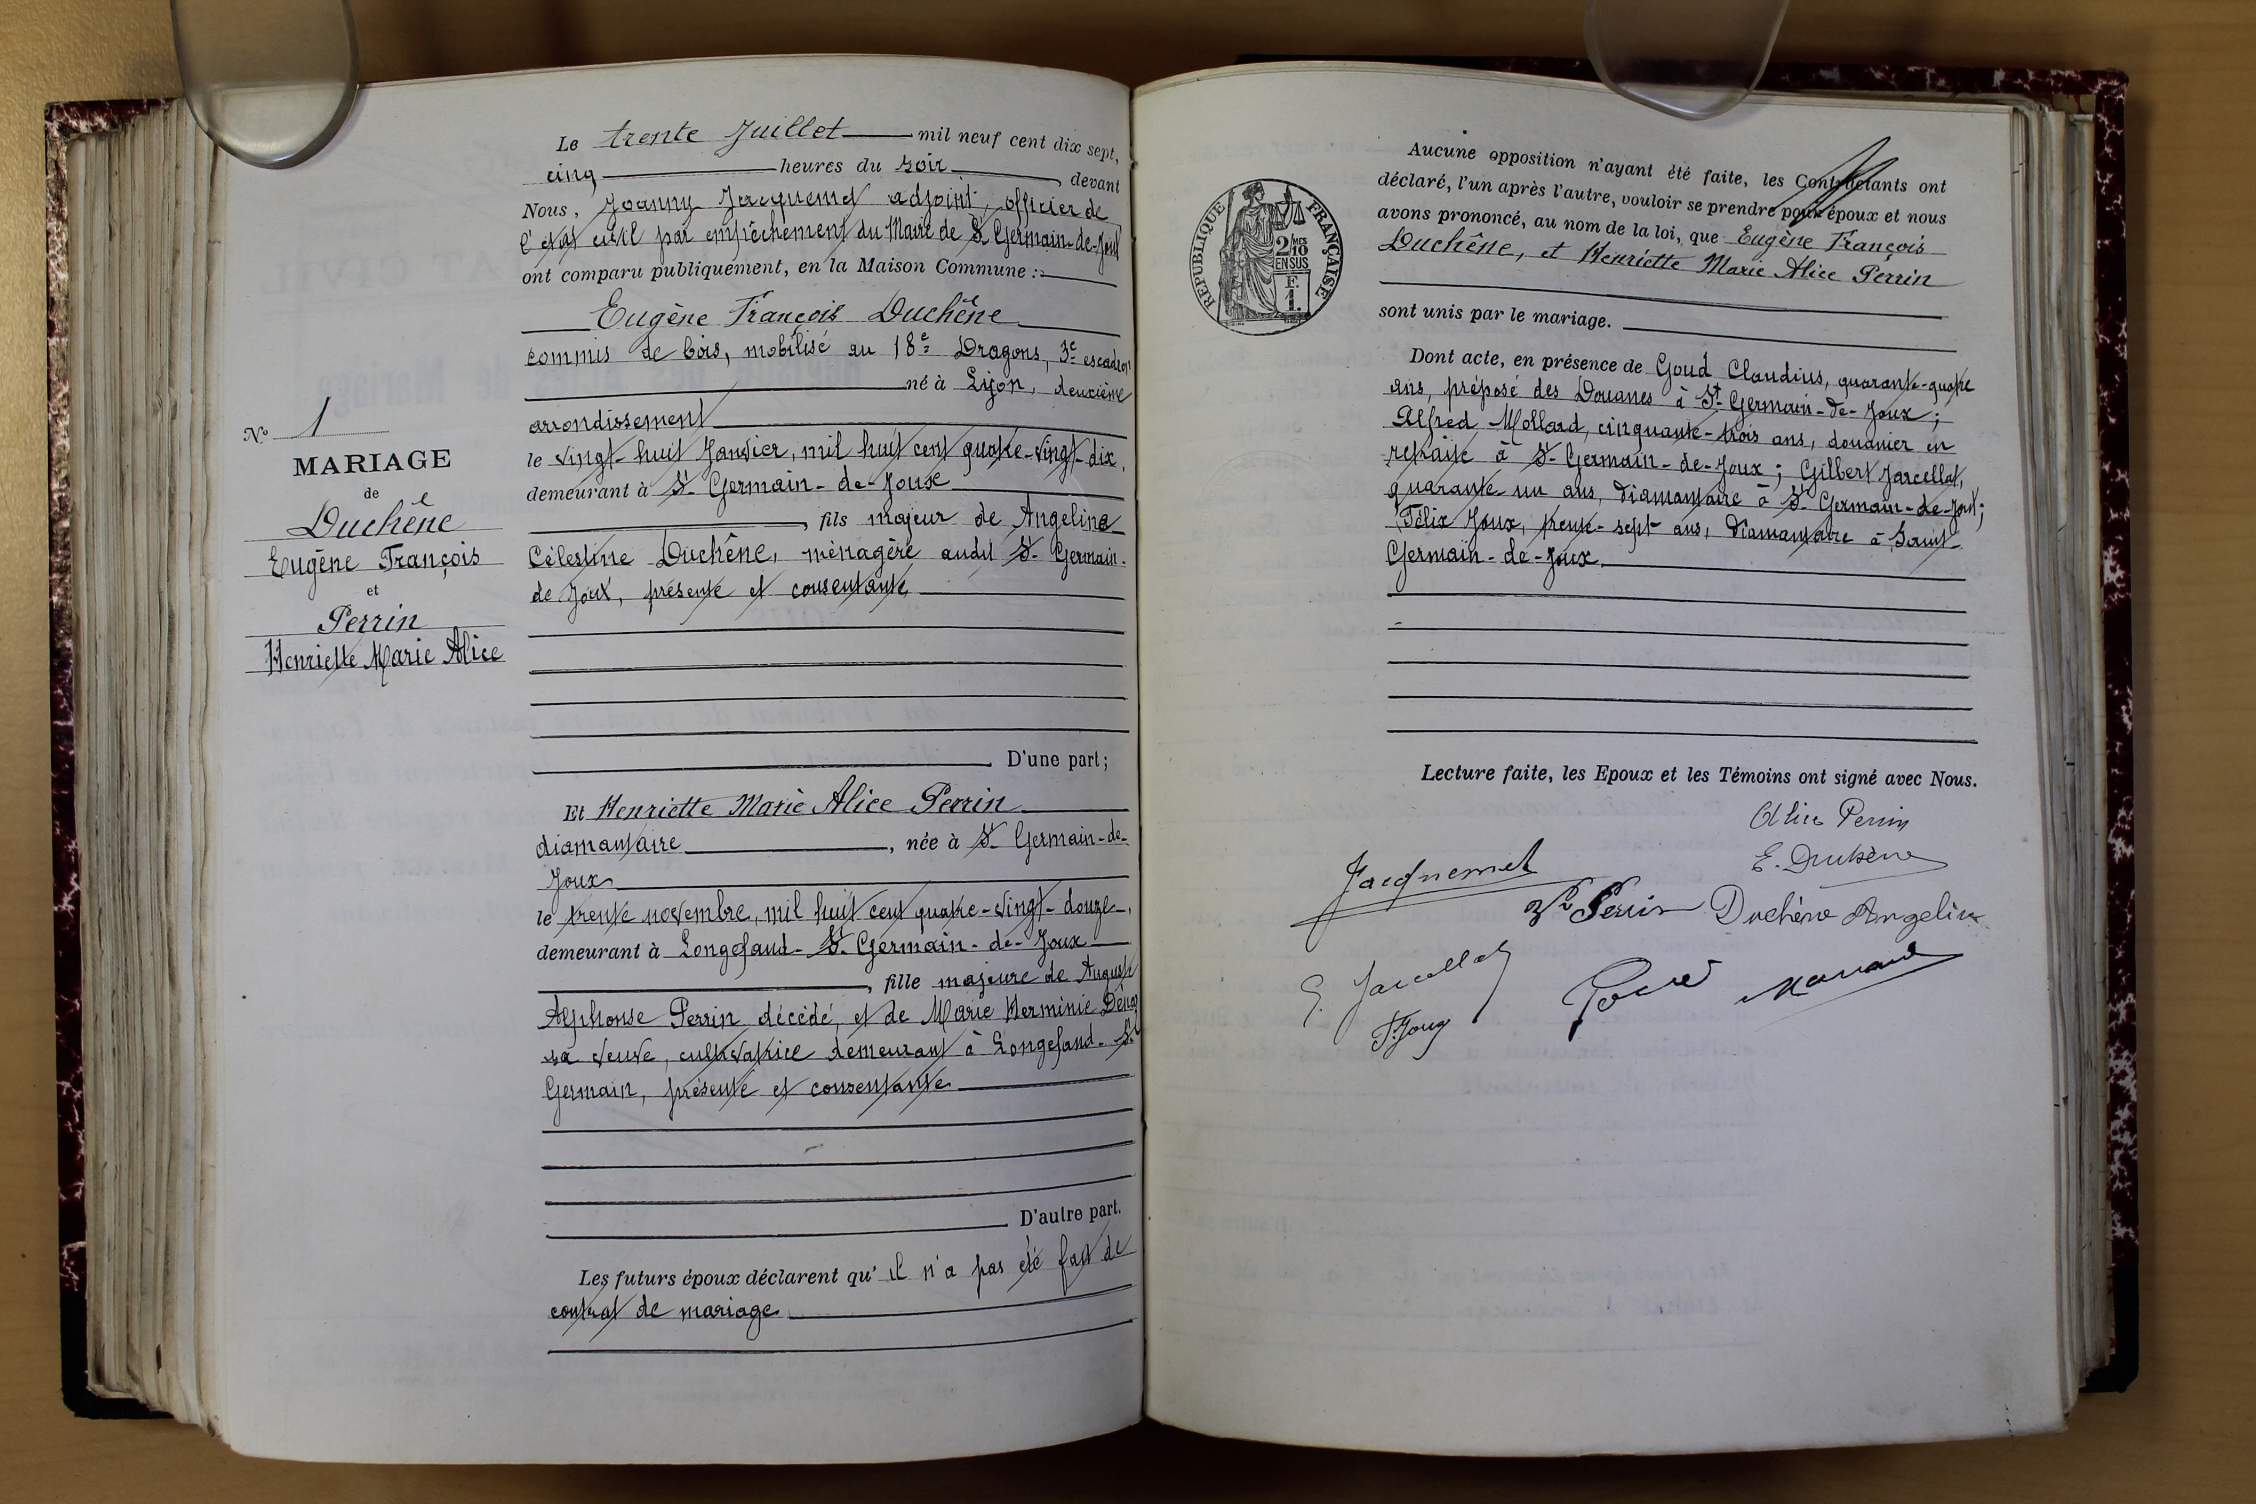 Le trente Juillet mil neuf cent dix sept,
cinq heures du soir, devant
Nous, Joanny Jacquemet adjoint, officier de
l'état civil par empêchement du Maire de St Germain-de-Joux
ont comparu publiquement, en la Maison Commune :
Eugène François Duchêne
commis de bois, mobilisé au 18e Dragons, 3e escadron
né à Lyon, deuxième
arrondissement
le vingt-huit Janvier, mil huit cent quatre-vingt-dix,
demeurant à St Germain-de-Joux
, fils majeur de Angeline
Célestine Duchêne, ménagère audit St Germain-
de Joux, présente et consentante,
D'une part;
No 1
MARIAGE
de
Duchêne
Eugène François
et
Perrin
Henriette Marie Alice
Et Henriette Marie Alice Perrin
diamantaire, née à St Germain-de-
Joux
le trente novembre, mil huit cent quatre-vingt-douze,
demeurant à Longefand-St Germain-de-Joux
, fille majeure de Auguste
Alphonse Perrin décédé, et de Marie Herminie
sa veuve, cultivatrice demeurant à Longefand-St
Germain, présente et consentante
D'autre part.
Les futurs époux déclarent qu'il n'a pas été fait de
contrat de mariage
RÉPUBLIQUE FRANÇAISE
2/10MES
EN SUS
F.
1.
Aucune opposition n'ayant été faite, les Contractants ont
déclaré, l'un après l'autre, vouloir se prendre pour époux et nous
avons prononcé, au nom de la loi, que Eugène François
Duchêne, et Henriette Marie Alice Perrin
sont unis par le mariage.
Dont acte, en présence de Goud Claudius, quarante-quatre
ans, préposé des Douanes à St-Germain-de-Joux;
Alfred Mollard, cinquante-trois ans, douanier en
retraite à St-Germain-de-Joux; Gilbert Jarcellat,
quarante un ans, diamantaire à St Germain-de-Joux;
Félix Joux, trente-sept ans, diamantaire à Saint-
Germain-de-Joux.
Lecture faite, les Epoux et les Témoins ont signé avec Nous.
Alice Perrin
E. Duchêne
Jacquemet
Perrin Duchêne Angeline
G. Jarcellat
F. Joux